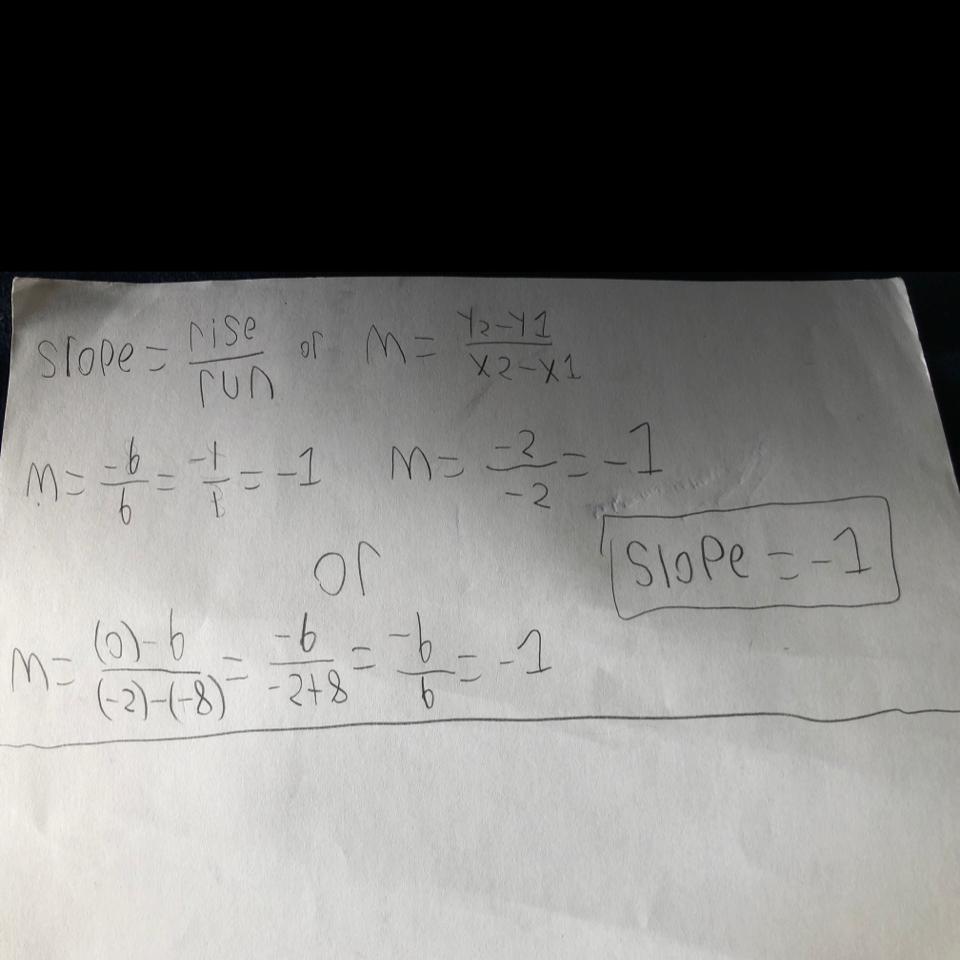 slope = rise/run or m = y2-y1/x2-x1
m = -6/6 = -1/1 = -1 m = -2/-2 = -1
or
slope = -1
m = (0)-6/(-2)-(-8) = -6/-2+8 = -6/6 = -1